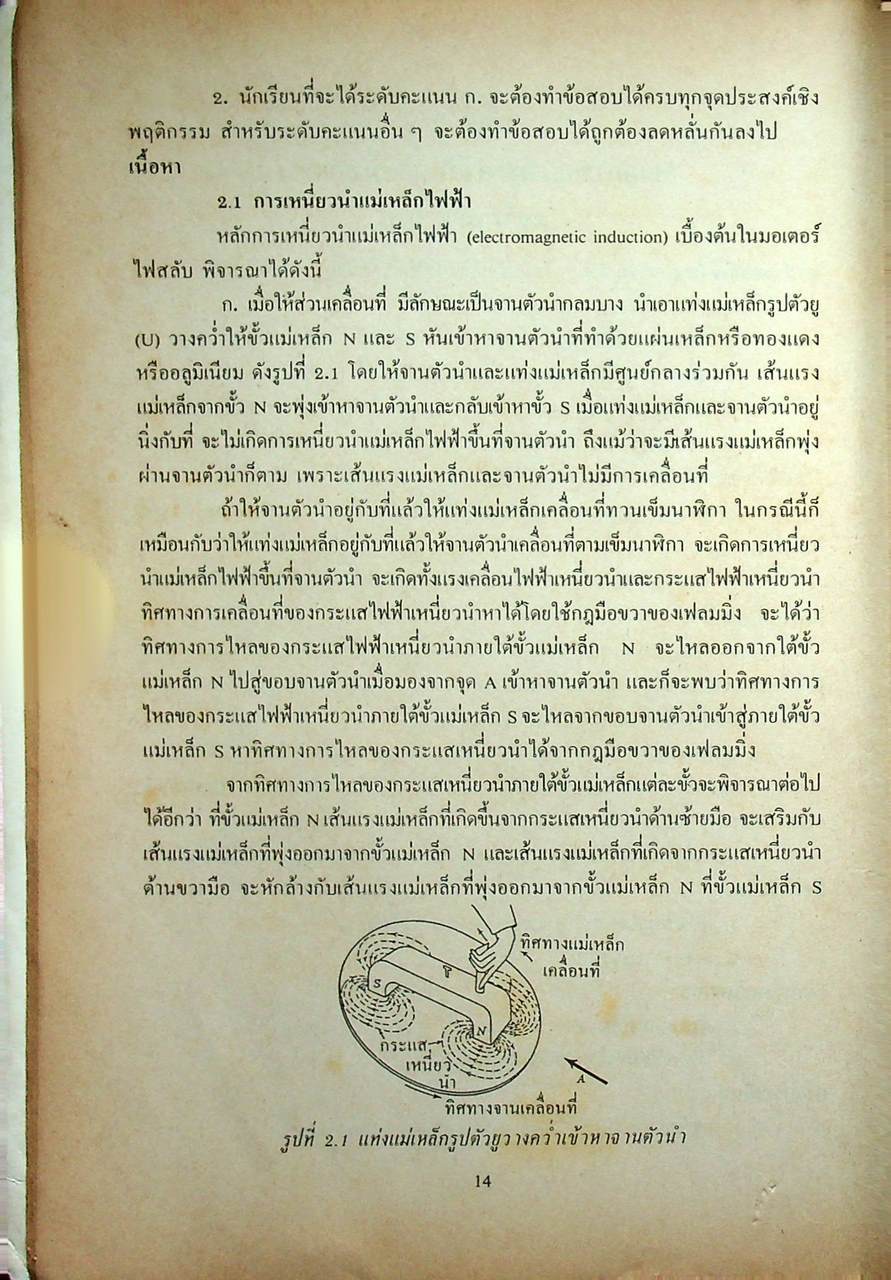 2. นักเรียนที่จะได้ระดับคะแนน ก. จะต้องทำข้อสอบได้ครบทุกจุดประสงค์เชิง
พฤติกรรม สำหรับระดับคะแนนอื่น ๆ จะต้องทำข้อสอบได้ถูกต้องลดหลั่นกันลงไป
เนื้อหา
2.1 การเหนี่ยวนำแม่เหล็กไฟฟ้า
หลักการเหนี่ยวนำแม่เหล็กไฟฟ้า (electromagnetic induction) เบื้องต้นในมอเตอร์
ไฟสลับ พิจารณาได้ดังนี้
ก. เมื่อให้ส่วนเคลื่อนที่ มีลักษณะเป็นจานตัวนำกลมบาง นำเอาแท่งแม่เหล็กรูปตัวยู
(U) วางคว่ำให้ขั้วแม่เหล็ก N และ S หันเข้าหาจานตัวนำที่ทำด้วยแผ่นเหล็กหรือทองแดง
หรืออลูมิเนียม ดังรูปที่ 2.1 โดยให้จานตัวนำและแท่งแม่เหล็กมีศูนย์กลางร่วมกัน เส้นแรง
แม่เหล็กจากขั้ว N จะพุ่งเข้าหาจานตัวนำและกลับเข้าหาขั้ว S เมื่อแท่งแม่เหล็กและจานตัวนำอยู่
นิ่งกับที่ จะไม่เกิดการเหนี่ยวนำแม่เหล็กไฟฟ้าขึ้นที่จานตัวนำ ถึงแม้ว่าจะมีเส้นแรงแม่เหล็กพุ่ง
ผ่านจานตัวนำก็ตาม เพราะเส้นแรงแม่เหล็กและจานตัวนำไม่มีการเคลื่อนที่
ถ้าให้จานตัวนำอยู่กับที่แล้วให้แท่งแม่เหล็กเคลื่อนที่ทวนเข็มนาฬิกา ในกรณีนี้ก็
เหมือนกับว่าให้แท่งแม่เหล็กอยู่กับที่แล้วให้จานตัวนำเคลื่อนที่ตามเข็มนาฬิกา จะเกิดการเหนี่ยว
นำแม่เหล็กไฟฟ้าขึ้นที่จานตัวนำ จะเกิดทั้งแรงเคลื่อนไฟฟ้าเหนี่ยวนำและกระแสไฟฟ้าเหนี่ยวนำ
ทิศทางการเคลื่อนที่ของกระแสไฟฟ้าเหนี่ยวนำหาได้โดยใช้กฎมือขวาของเฟลมมิ่ง จะได้ว่า
ทิศทางการไหลของกระแสไฟฟ้าเหนี่ยวนำภายใต้ขั้วแม่เหล็ก N จะไหลออกจากใต้ขั้ว
แม่เหล็ก N ไปสู่ขอบจานตัวนำเมื่อมองจากจุด A เข้าหาจานตัวนำ และก็จะพบว่าทิศทางการ
ไหลของกระแสไฟฟ้าเหนี่ยวนำภายใต้ขั้วแม่เหล็ก S จะไหลจากขอบจานตัวนำเข้าสู่ภายใต้ขั้ว
แม่เหล็ก S หาทิศทางการไหลของกระแสเหนี่ยวนำได้จากกฎมือขวาของเฟลมมิ่ง
จากทิศทางการไหลของกระแสเหนี่ยวนำภายใต้ขั้วแม่เหล็กแต่ละขั้วจะพิจารณาต่อไป
ได้อีกว่า ที่ขั้วแม่เหล็ก N เส้นแรงแม่เหล็กที่เกิดขึ้นจากกระแสเหนี่ยวนำด้านซ้ายมือ จะเสริมกับ
เส้นแรงแม่เหล็กที่พุ่งออกมาจากขั้วแม่เหล็ก N และเส้นแรงแม่เหล็กที่เกิดจากกระแสเหนี่ยวนำ
ด้านขวามือ จะหักล้างกับเส้นแรงแม่เหล็กที่พุ่งออกมาจากขั้วแม่เหล็ก N ที่ขั้วแม่เหล็ก S
ทิศทางแม่เหล็ก
เคลื่อนที่
S
N
กระแส
เหนี่ยว
นำ
A
ทิศทางจานเคลื่อนที่
รูปที่ 2.1 แท่งแม่เหล็กรูปตัวยูวางคว่ำเข้าหาจานตัวนำ
14